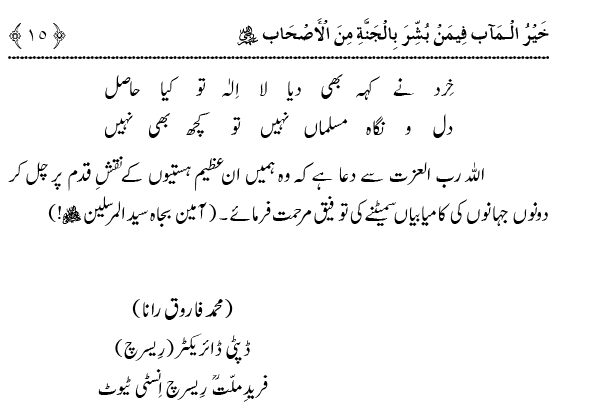 خَيْرُ الْمَآب فِيمَنْ بُشِّرَ بِالْجَنَّةِ مِنَ الْأَصْحَاب ﷺ ﴿١٥﴾
خِرد نے کہہ بھی دیا لا اِلٰہ تو کیا حاصل
دل و نگاہ مسلماں نہیں تو کچھ بھی نہیں
اللہ رب العزت سے دعا ہے کہ وہ ہمیں ان عظیم ہستیوں کے نقشِ قدم پر چل کر
دونوں جہانوں کی کامیابیاں سمیٹنے کی توفیق مرحمت فرمائے۔ (آمین بجاہ سید المرسلین ﷺ!)
(محمد فاروق رانا)
ڈپٹی ڈائریکٹر (رِیسرچ)
فریدِ ملّتؒ رِیسرچ اِنسٹی ٹیوٹ